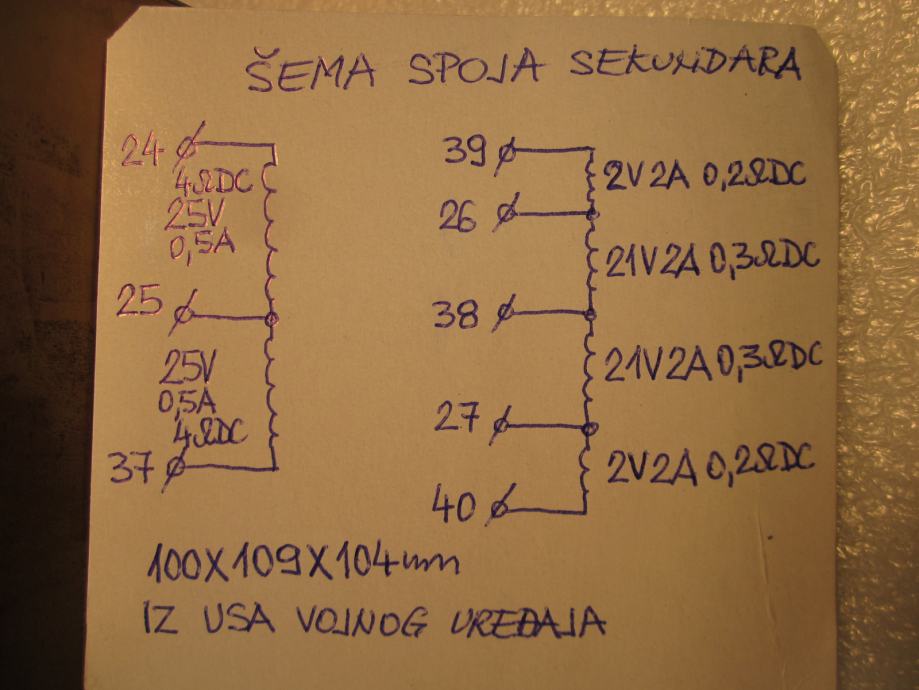 ŠEMA SPOJA SEKUNDARA
24
4ΩDC
25V
0,5A
25
25V
0,5A
4ΩDC
37
39
2V 2A 0,2ΩDC
26
21V 2A 0,3ΩDC
38
21V 2A 0,3ΩDC
27
2V 2A 0,2ΩDC
40
100X109X104mm
IZ USA VOJNOG UREĐAJA